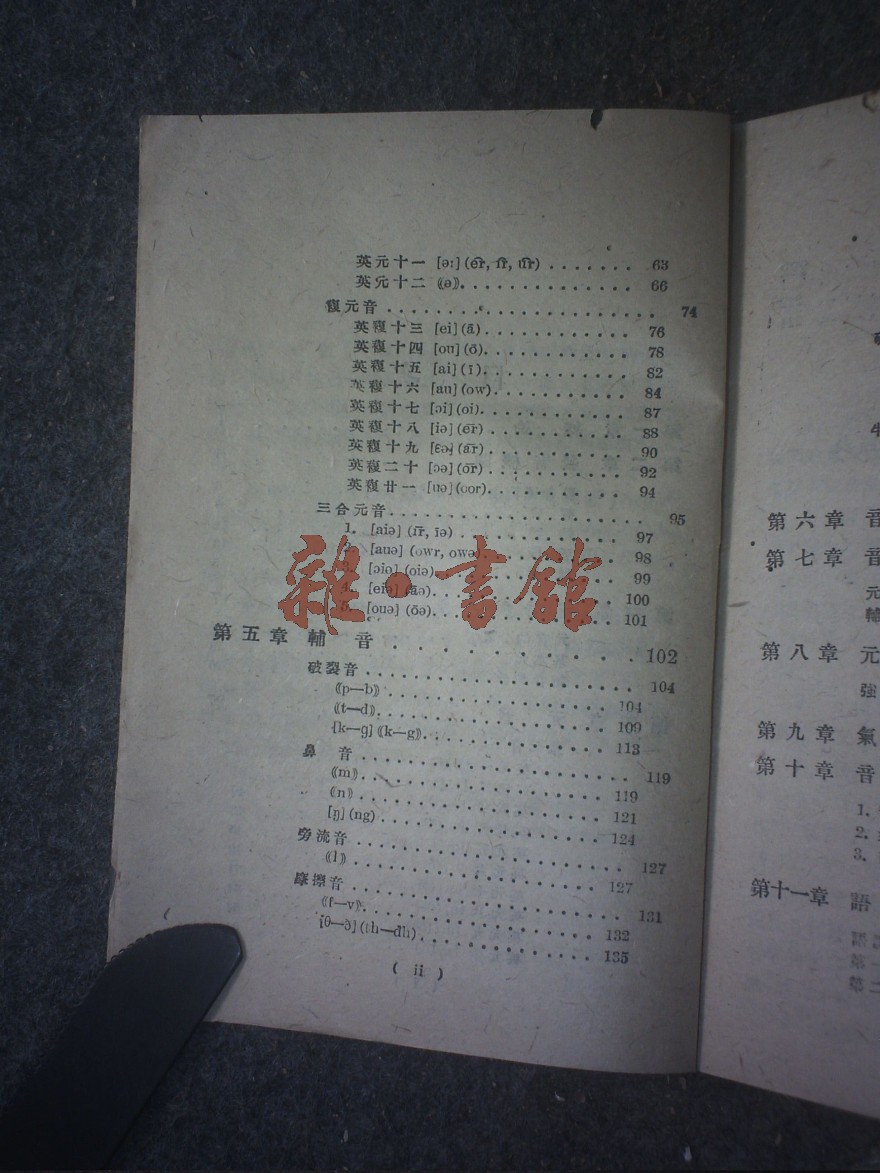 英元十一 [ə:] (er, ir, ur) . . . . . . . 63
英元十二 ⟪ə⟫. . . . . . . . . . . . . . 66
複元音 . . . . . . . . . . . . . . . . . . . 74
英複十三 [ei] (ā) . . . . . . . . . . . . 76
英複十四 [ou] (ō). . . . . . . . . . . . 78
英複十五 [ai] (ī) . . . . . . . . . . . . 82
英複十六 [au] (ow). . . . . . . . . . . 84
英複十七 [ɔi] (oi). . . . . . . . . . . . 87
英複十八 [iə] (ēr) . . . . . . . . . . . 88
英複十九 [ɛə] (ār) . . . . . . . . . . . 90
英複二十 [ɔə] (ōr) . . . . . . . . . . . 92
英複廿一 [uə] (oor). . . . . . . . . . . 94
三合元音. . . . . . . . . . . . . . . . . . 95
1. [aiə] (īr, īə) . . . . . . . . . . . . . 97
[auə] (owr, owə) . . . . . . . . . . 98
[ɔiə] (oiə). . . . . . . . . . . . . . . 99
[eiə] (āə). . . . . . . . . . . . . . . 100
[ouə] (ōə). . . . . . . . . . . . . . 101
雜·書館
第五章 輔 音 . . . . . . . . . . . 102
破裂音 . . . . . . . . . . . . . . . . . . . 104
⟪p—b⟫ . . . . . . . . . . . . . . . . . 104
⟪t—d⟫. . . . . . . . . . . . . . . . . . 109
[k—g] ⟪k—g⟫. . . . . . . . . . . . . . 113
鼻 音 . . . . . . . . . . . . . . . . . . . 119
⟪m⟫. . . . . . . . . . . . . . . . . . . 119
⟪n⟫. . . . . . . . . . . . . . . . . . . 121
[ŋ] (ng) . . . . . . . . . . . . . . . . . 124
旁流音 . . . . . . . . . . . . . . . . . . . 127
⟪l⟫. . . . . . . . . . . . . . . . . . . . 127
摩擦音 . . . . . . . . . . . . . . . . . . . 131
⟪f—v⟫. . . . . . . . . . . . . . . . . . 132
[θ—ð] (th—dh) . . . . . . . . . . . . . 135
( ii )
第六章 音
第七章 音
元
輔
第八章 元
強
第九章 氣
第十章 音
1.
2.
3.
第十一章 語
第一
第二